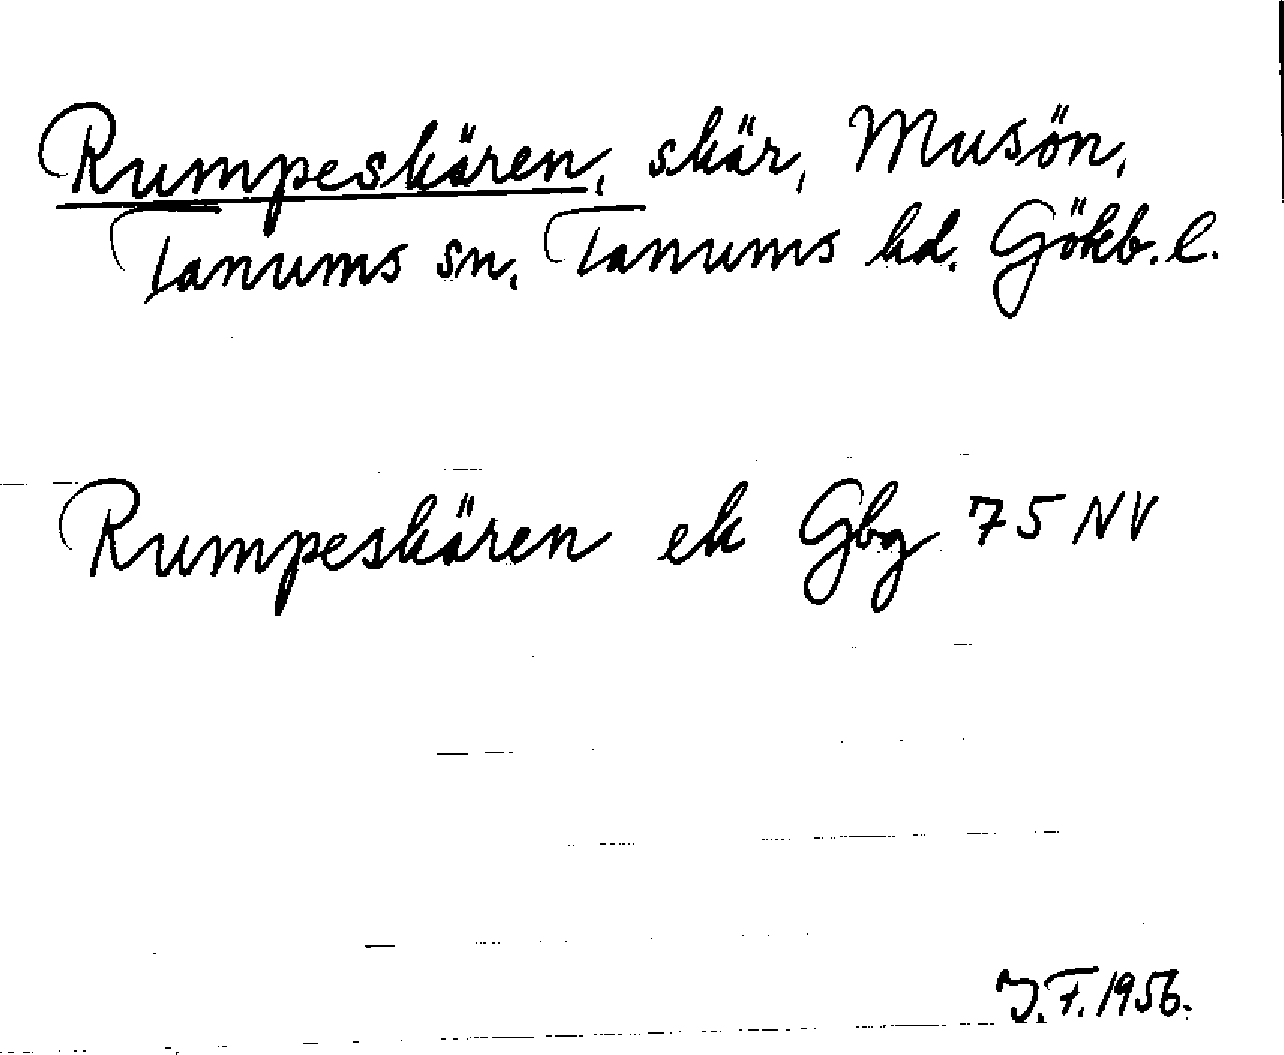 Rumpeskären, skär, Musön,
Tanums sn. Tanums hd. Gökb. l.
Rumpeskären ek Gbg 75 NV
J.F. 1956.